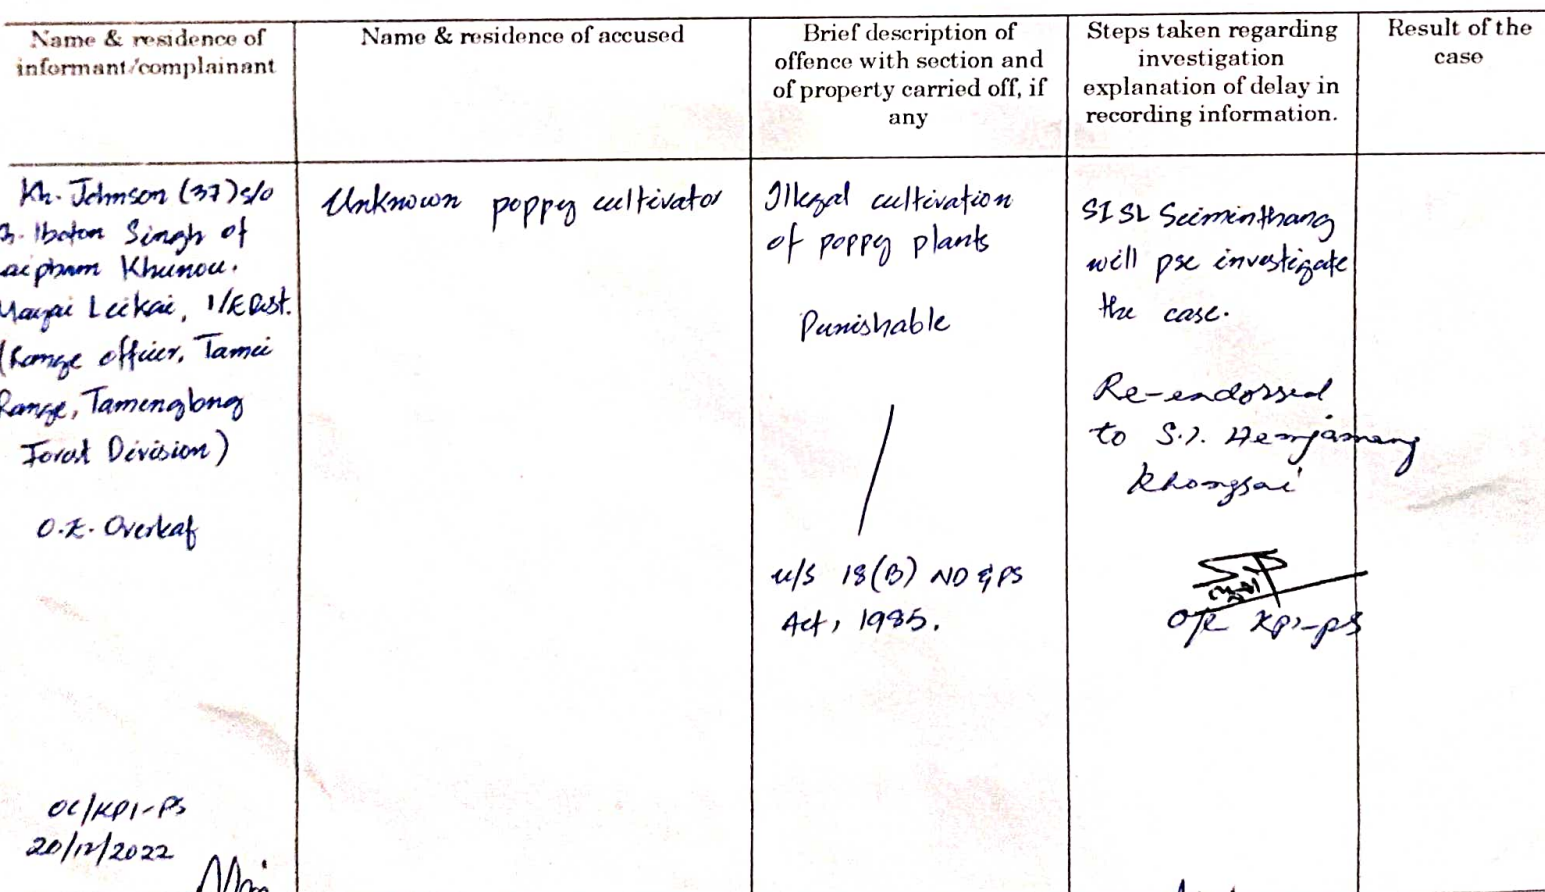 Name & residence of
informant/complainant
Name & residence of accused
Brief description of
offence with section and
of property carried off, if
any
Steps taken regarding
investigation
explanation of delay in
recording information.
Result of the
case
Kh. Johnson (37) s/o
Iboton Singh of
Khunou.
Leikai, I/E Dist.
(Range officer, Tamei
Range, Tamenglong
Forest Division)
O.E. Overleaf
OC/KPI-PS
20/12/2022
Unknown poppy cultivator
Illegal cultivation
of poppy plants
Punishable
u/s 18(B) ND & PS
Act, 1985.
SI SL Seiminthang
will pse investigate
the case.
Re-endorsed
to S.I. Henjamang
Khongsai
KPI-PS